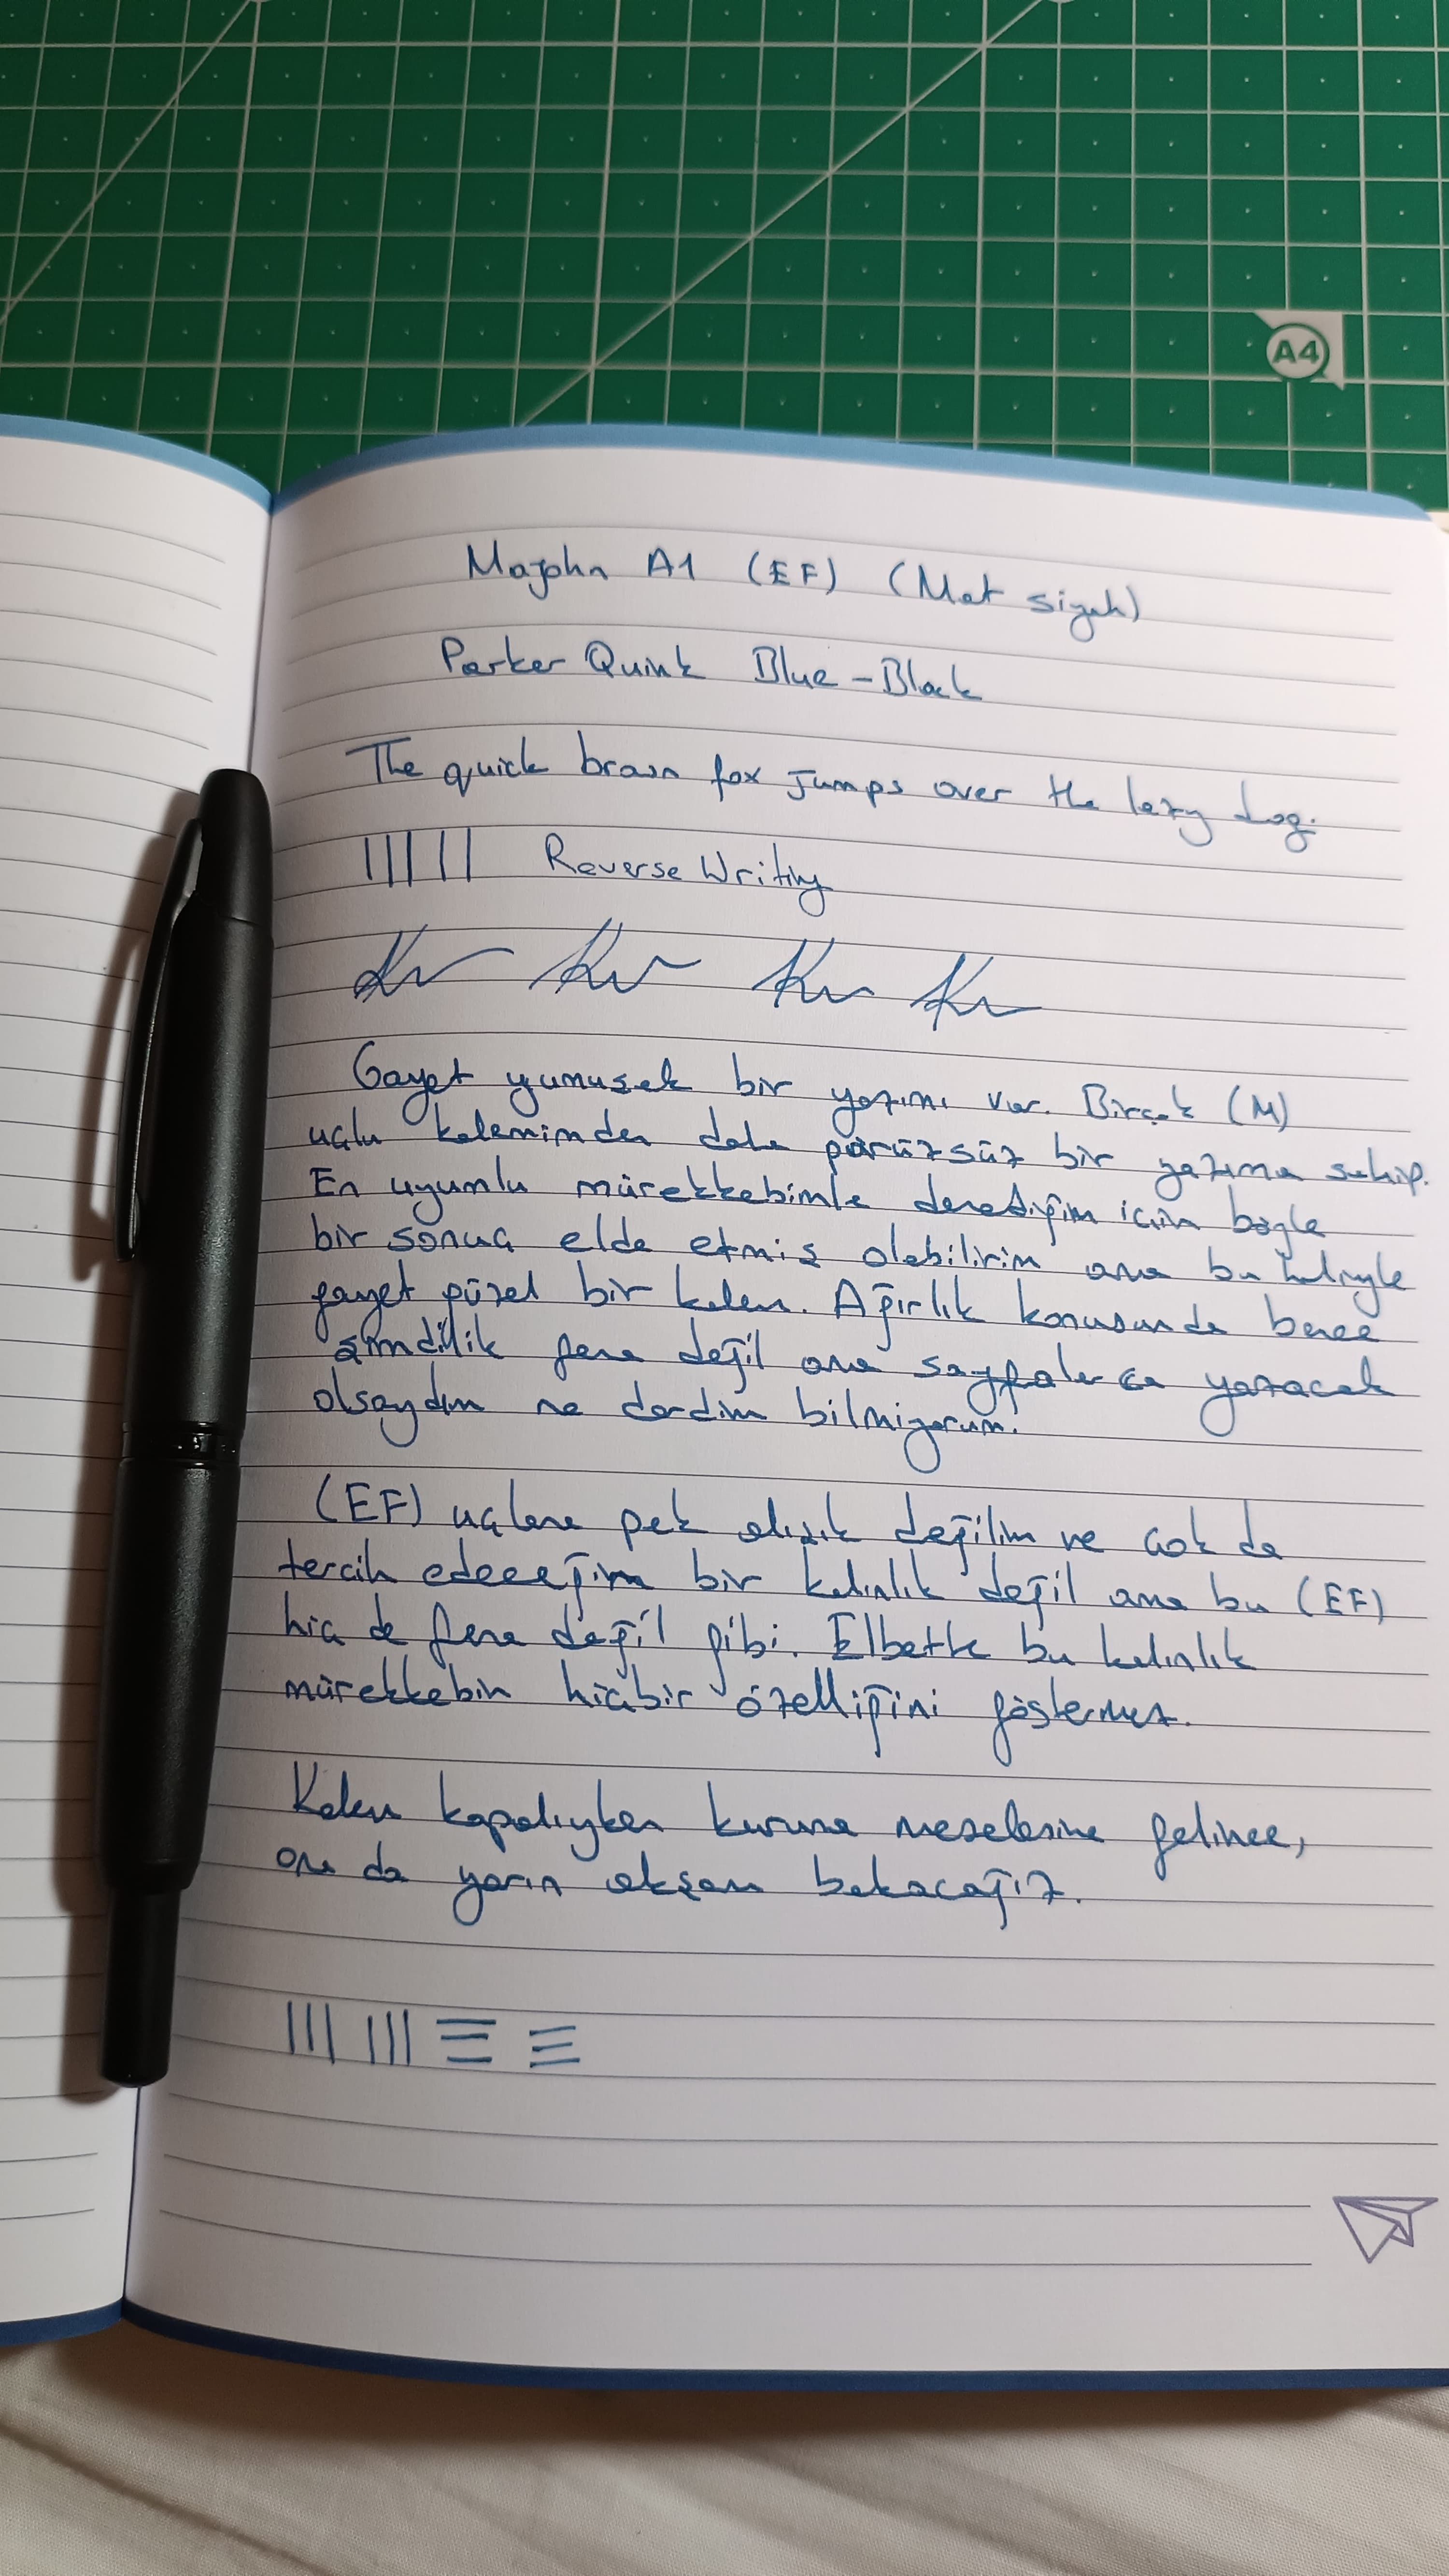 A4
Majohn A1 (EF) (Mat siyah)
Parker Quink Blue-Black
The quick brown fox jumps over the lazy dog.
Reverse Writing
Gayet yumuşak bir yazımı var. Birçok (M)
uçlu kalemimden daha pürüzsüz bir yazıma sahip.
En uyumlu mürekkebimle denediğim için böyle
bir sonuç elde etmiş olabilirim ama bu haliyle
gayet güzel bir kalem. Ağırlık konusunda bence
şimdilik fena değil ama sayfalarca yazacak
olsaydım ne derdim bilmiyorum.
(EF) uçlara pek alışık değilim ve çok da
tercih edeceğim bir kalınlık değil ama bu (EF)
hiç de fena değil gibi. Elbette bu kalınlık
mürekkebin hiçbir özelliğini göstermez.
Kalem kapalıyken kuruma meselesine gelince,
ona da yarın akşam bakacağız.